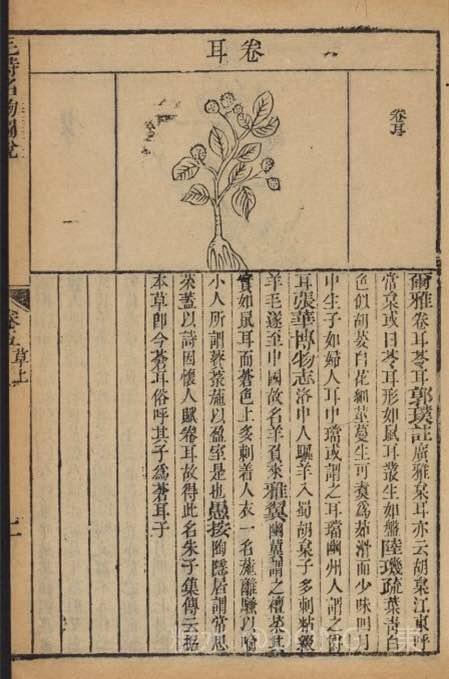 卷耳
卷耳
爾雅卷耳苓耳郭璞註廣雅枲耳亦云胡枲江東呼
常枲或曰苓耳形如鼠耳叢生如盤陸璣疏葉青白
色似胡荽白花細莖蔓生可煮為茹滑而少味四月
中生子如婦人耳中璫或謂之耳璫幽州人謂之爵
耳張華博物志洛中人驅羊入蜀胡枲子多刺粘綴
羊毛遂至中國故名羊負來雅翼幽冀謂之襢菜其
實如鼠耳而蒼色上多刺着人衣一名葹離騷以喻
小人所謂薋菉葹以盈室是也愚按陶隱居謂常思
菜蓋以詩因懷人賦卷耳故得此名朱子集傳云據
本草即今蒼耳俗呼其子為蒼耳子
毛詩名物圖說
卷五 草上